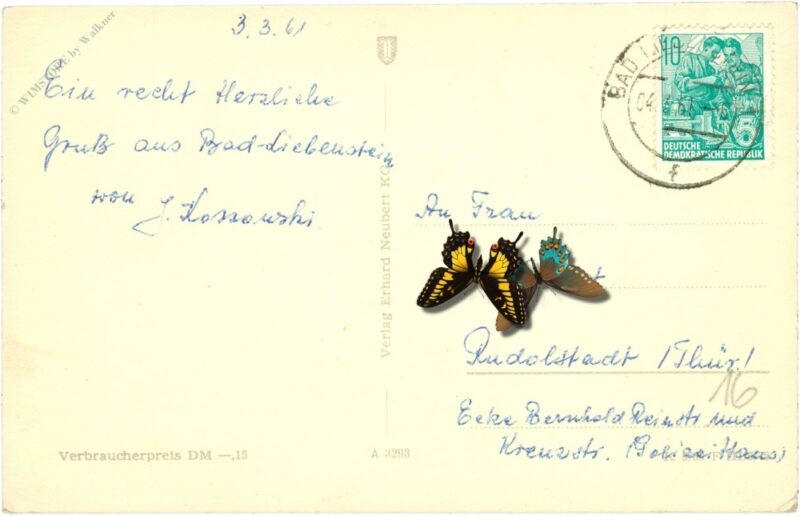 3. 3. 61
© WIMSTORE by Walkner
Ein recht Herzliche
Gruß aus Bad-Liebenstein
von J. Kossowski.
Verbraucherpreis DM —,15
A 3293
Verlag Erhard Neubert KG
10
DEUTSCHE
DEMOKRATISCHE REPUBLIK
BAD
04.
61
f
An Frau
Rudolstadt (Thür.)
16
Ecke Bernhold Reinstr und
Kreuzstr. (Polizei Haus)